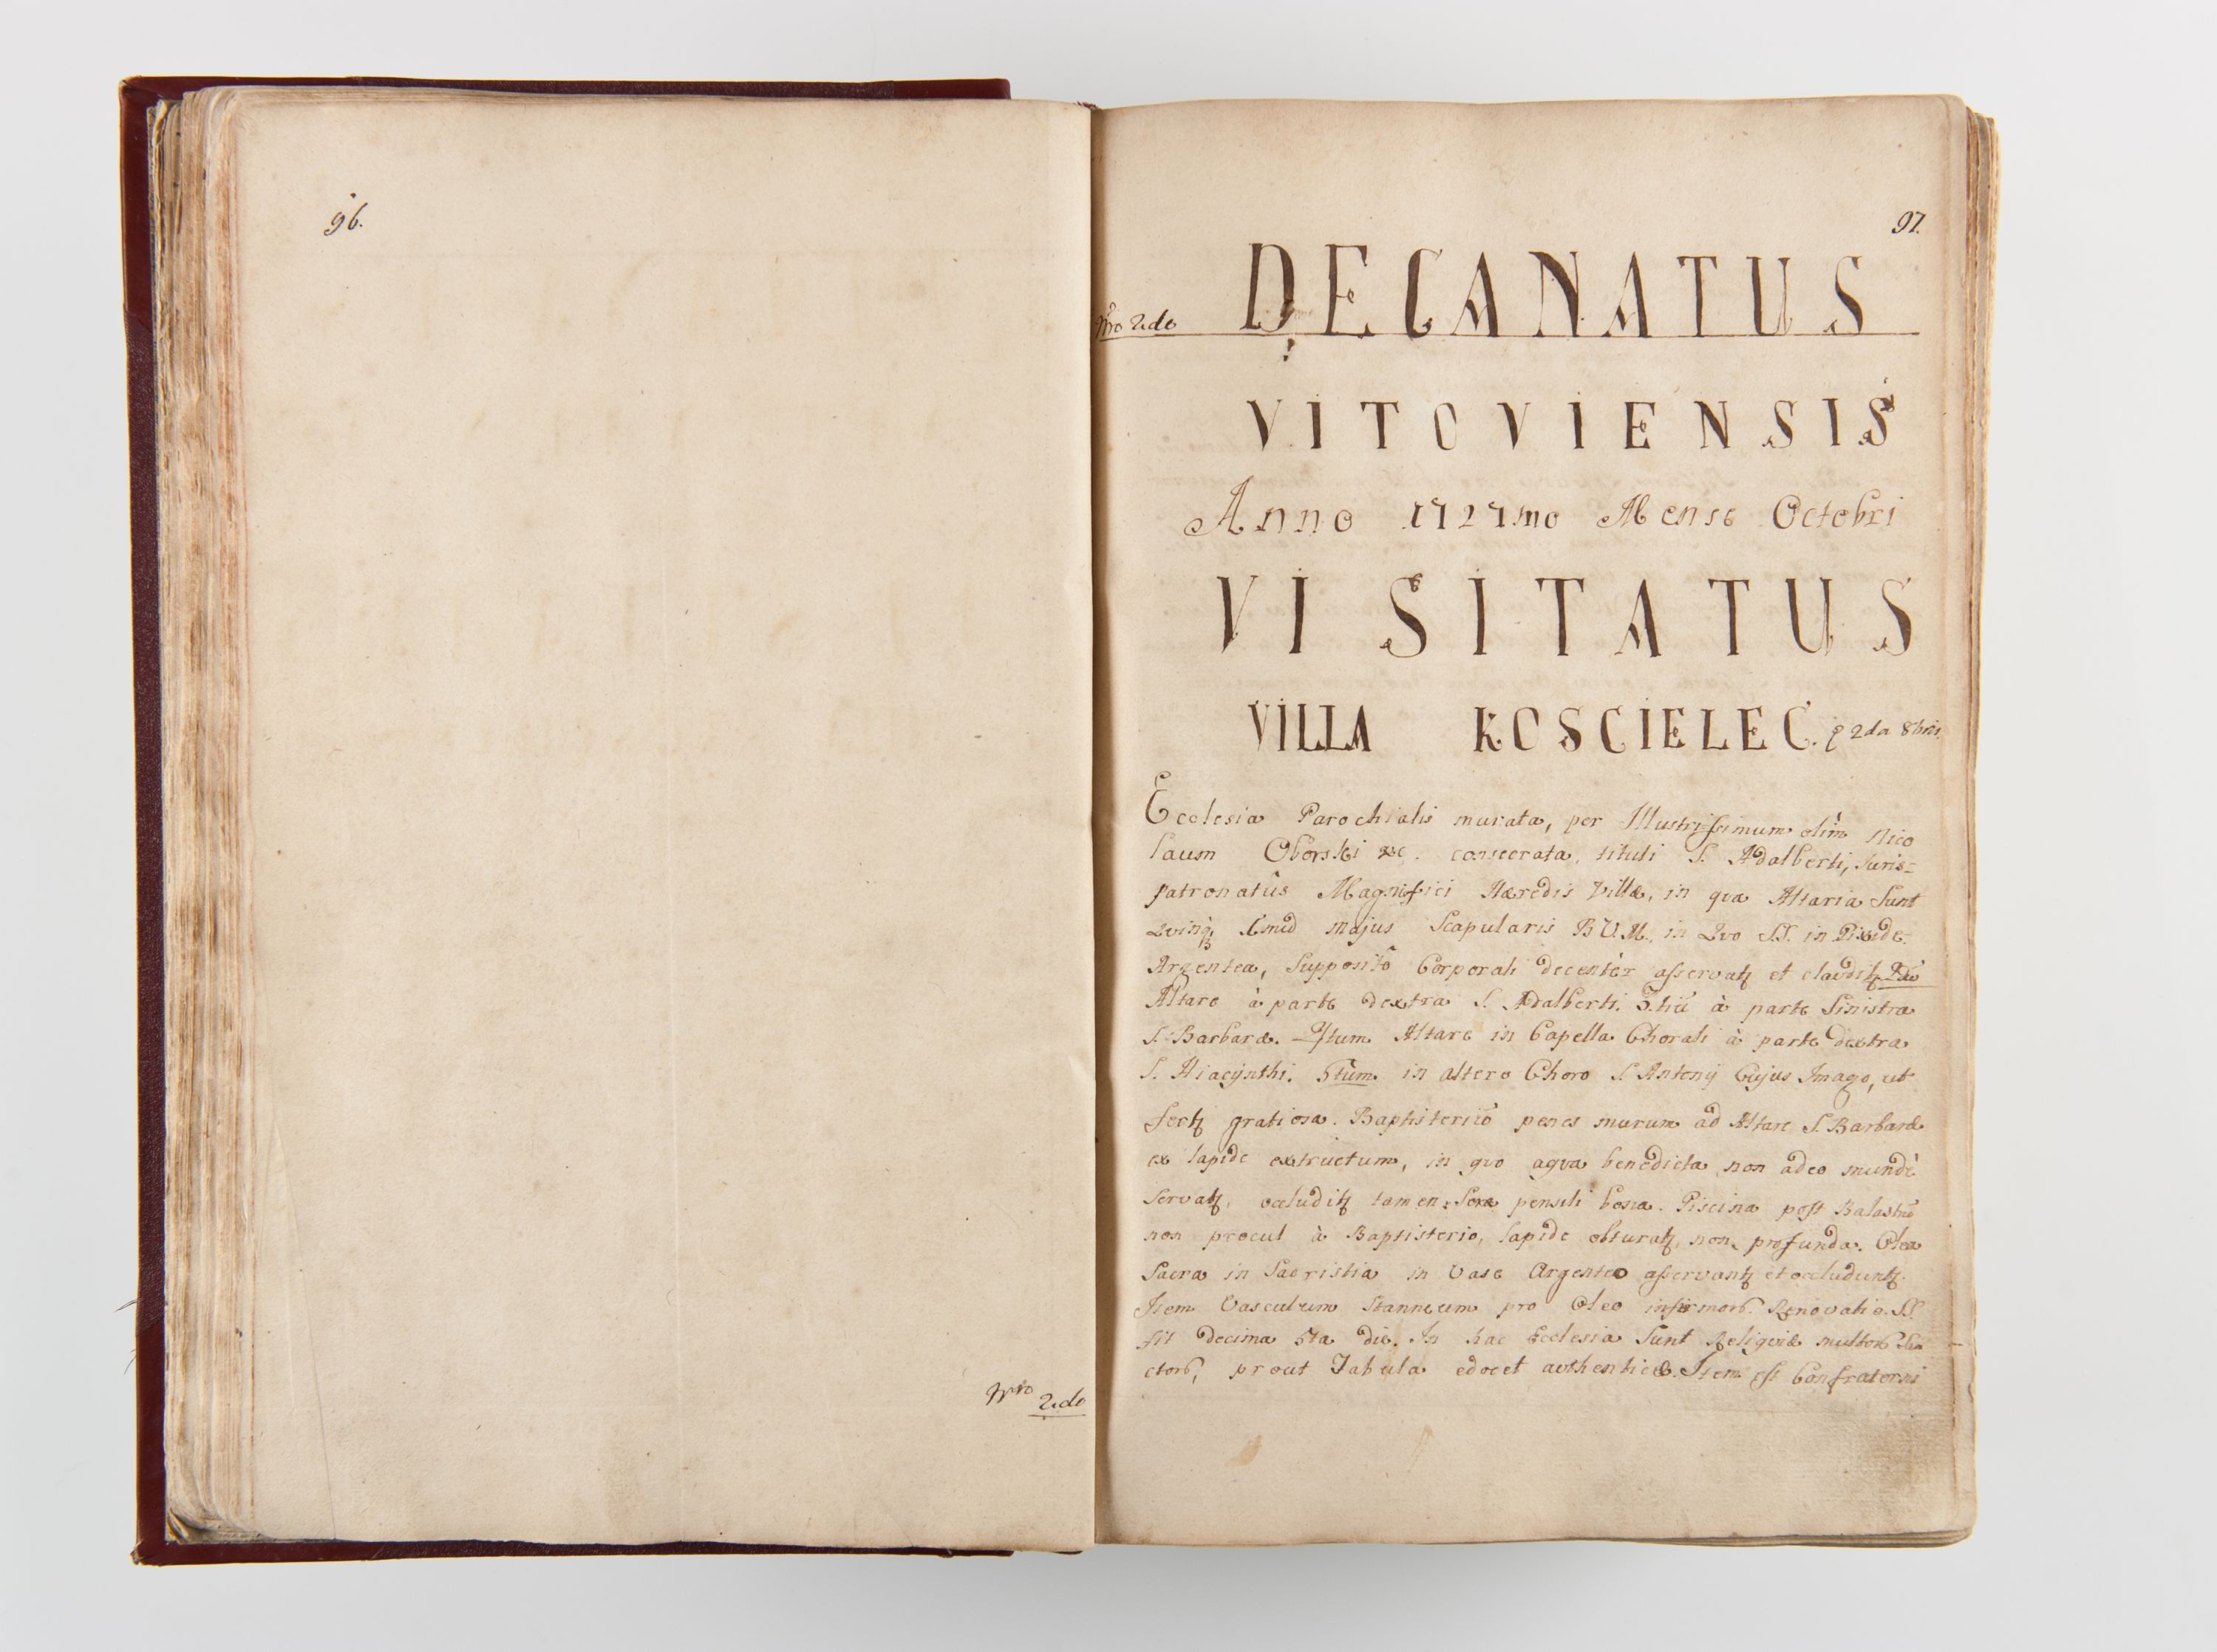 96.
Nro 2do
97.
Nro 2do DECANATUS
VITOVIENSIS
Anno 1727mo Mense Octobri
VISITATUS
VILLA KOSCIELEC. 2da 8bris.
Ecclesia Parochialis murata, per Illustrissimum olim Nico
laum Oborski &c. consecrata, tituli S. Adalberti, Juris=
patronatûs Magnifici Hæredis Villæ, in qva Altaria Sunt
Qvinqꝫ 1mũ majus Scapularis B.V.M., in Qvo SS. in Pixide
Argentea, Suppositô Corporali decentèr asservatꝫ et clauditꝫ 2dũ
Altare à parte dextra S. Adalberti. 3tiũ à parte Sinistra
S. Barbaræ. 4tum Altare in Capella Chorali à parte dextra
S. Hiacÿnthi. 5tum in altero Choro S. Antonÿ Cujus Imago, ut
fertꝫ gratiosa. Baptisteriũ penes murum ad Altare S. Barbaræ
ex lapide extructum, in qvo aqva benedicta non adeo mundè
Servatꝫ, occluditꝫ tamen Sera pensili bona. Piscina post Balastrũ
non procul à Baptisterio, lapide obturatꝫ, non profunda. Olea
Sacra in Sacristia in Vase Argenteo asservantꝫ et occluduntꝫ.
Item Vasculum Stanneum pro Oleo infirmorꝫ. Renovatio SS.
fit decima 5ta die. In hac Ecclesia Sunt Reliqviæ multorꝫ San
ctorꝫ, prout Tabula edocet authenticæ. Item est Confraterni